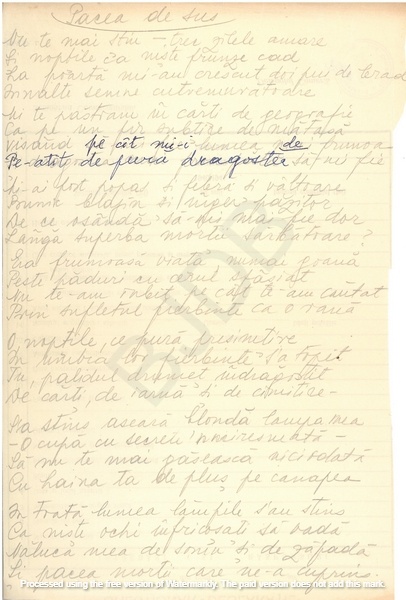 Pacea de sus
Nu te mai știu – trec zilele amare
Și nopțile ca niște frunze cad
La poartă mi-au crescut doi pui de brad
Înalte semne cutremurătoare
Să te păstram în cărți de geografie
Ca pe un fir subțire de mătasă
Visând pe cât mi-i lumea de frumoa
Pe-atît de pura dragostea să-mi fie
Mi-ai fost popas și febră și vâltoare
Drumic blajin și înger păzitor
De ce osândă să-mi mai fie dor
Lângă superba morții sărbătoare?
Era frumoasă viața numai goană
Peste păduri cu cerul sfâșiat
Nu te-am iubit pe cât te-am căutat
Prin sufletul fierbinte ca o rană
O, nopțile, ce pură presimțire
În umbra lor fierbinte s-a topit
Tu, palidul drumeț îndrăgostit
De cărți, de iarnă și de cimitire –
S-a stins aseară blonda lampa mea
– O cupă cu secrete
Să nu te mai găsească niciodată
Cu haina ta de pluș pe canapea
În toată lumea lămpile s-au stins
Ca niște ochi înfricoșați să vadă
Năluca mea de somn și de zăpadă
Și pacea morții care ne-a cuprins.
BJDB
Processed using the free version of Watermarkly. The paid version does not add this mark.